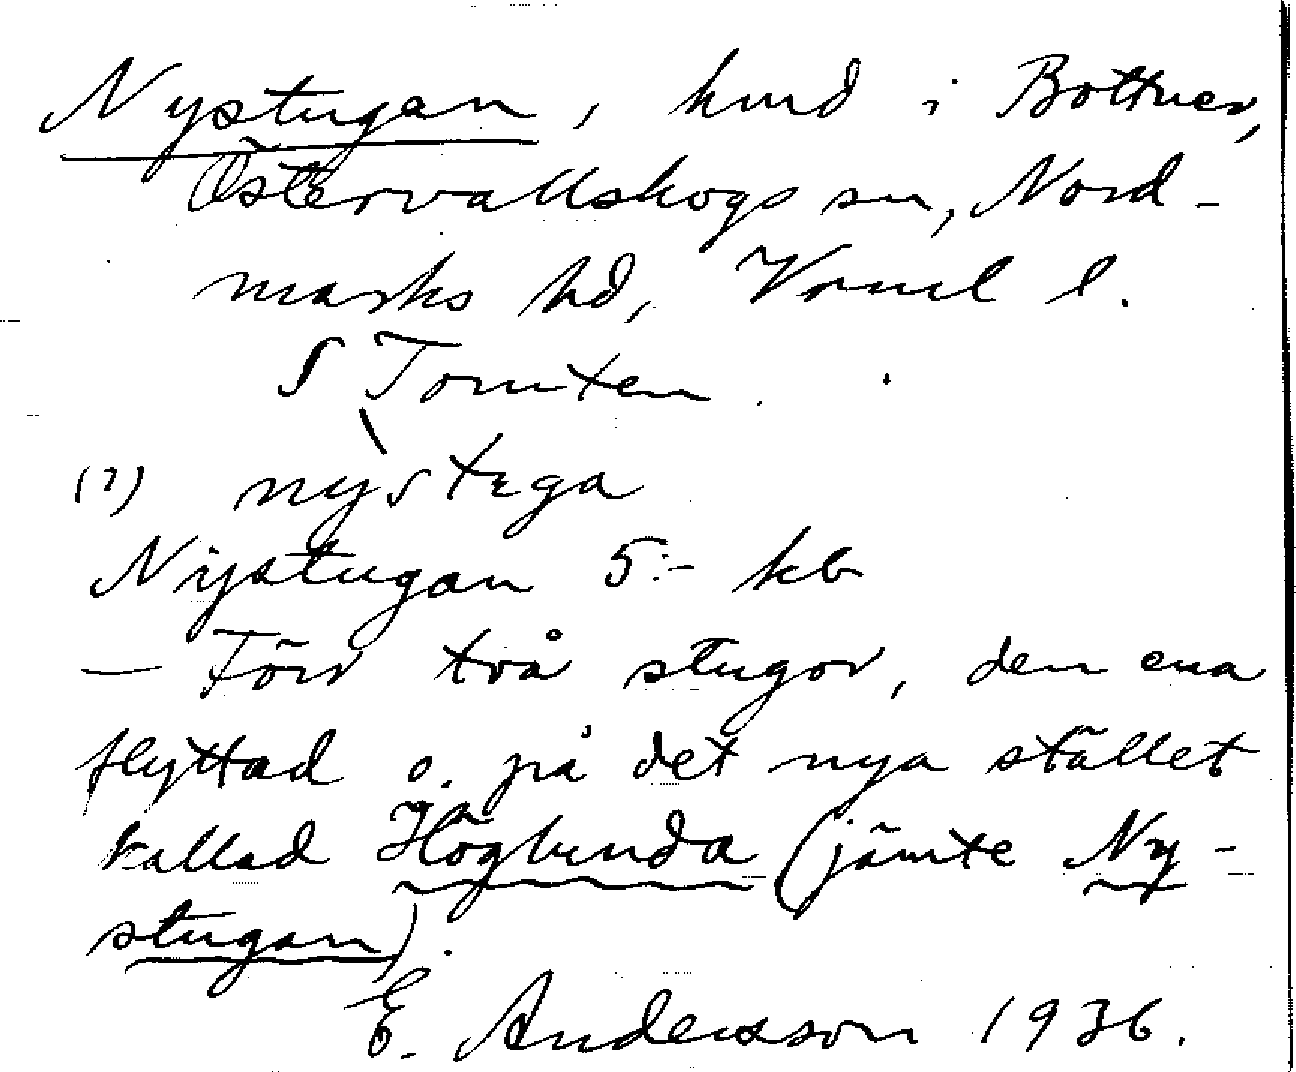 Nystugan, hmd i Bottnen,
Östervallskogs sn, Nord-
marks hd, Vrml l.
S Tomten.
(?) nỳstega
Nystugan 5:- kb
— Förr två stugor, den ena
flyttad o. på det nya stället
kallad Höglunda (jämte Ny-
stugan).
E. Andersson 1936.